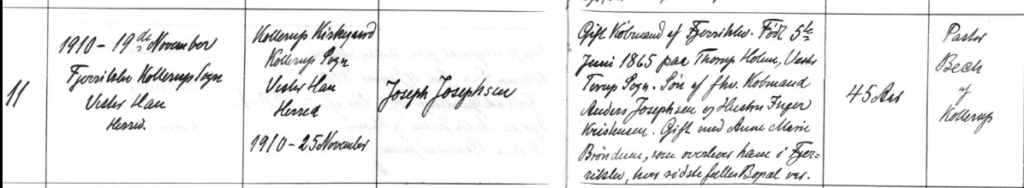 11
1910 - 19de November
Fjerritslev Kollerup Sogn
Vester Han
Herred.
Kollerup Kirkegaard
Kollerup Sogn
Vester Han
Herred
1910 - 25 November
Joseph Josephsen
Gift Købmand af Fjerritslev. Født 5te
Juni 1865 paa Thorup Holm, Vester
Torup Sogn. Søn af fhv. Købmand
Anders Josephsen og Hustru Inger
Kristensen. Gift med Anne Marie
Brøndum, som overlever ham i Fjer-
ritslev, hvor sidste fælles Bopæl var.
45 Aar
Pastor
Bech
af
Kollerup